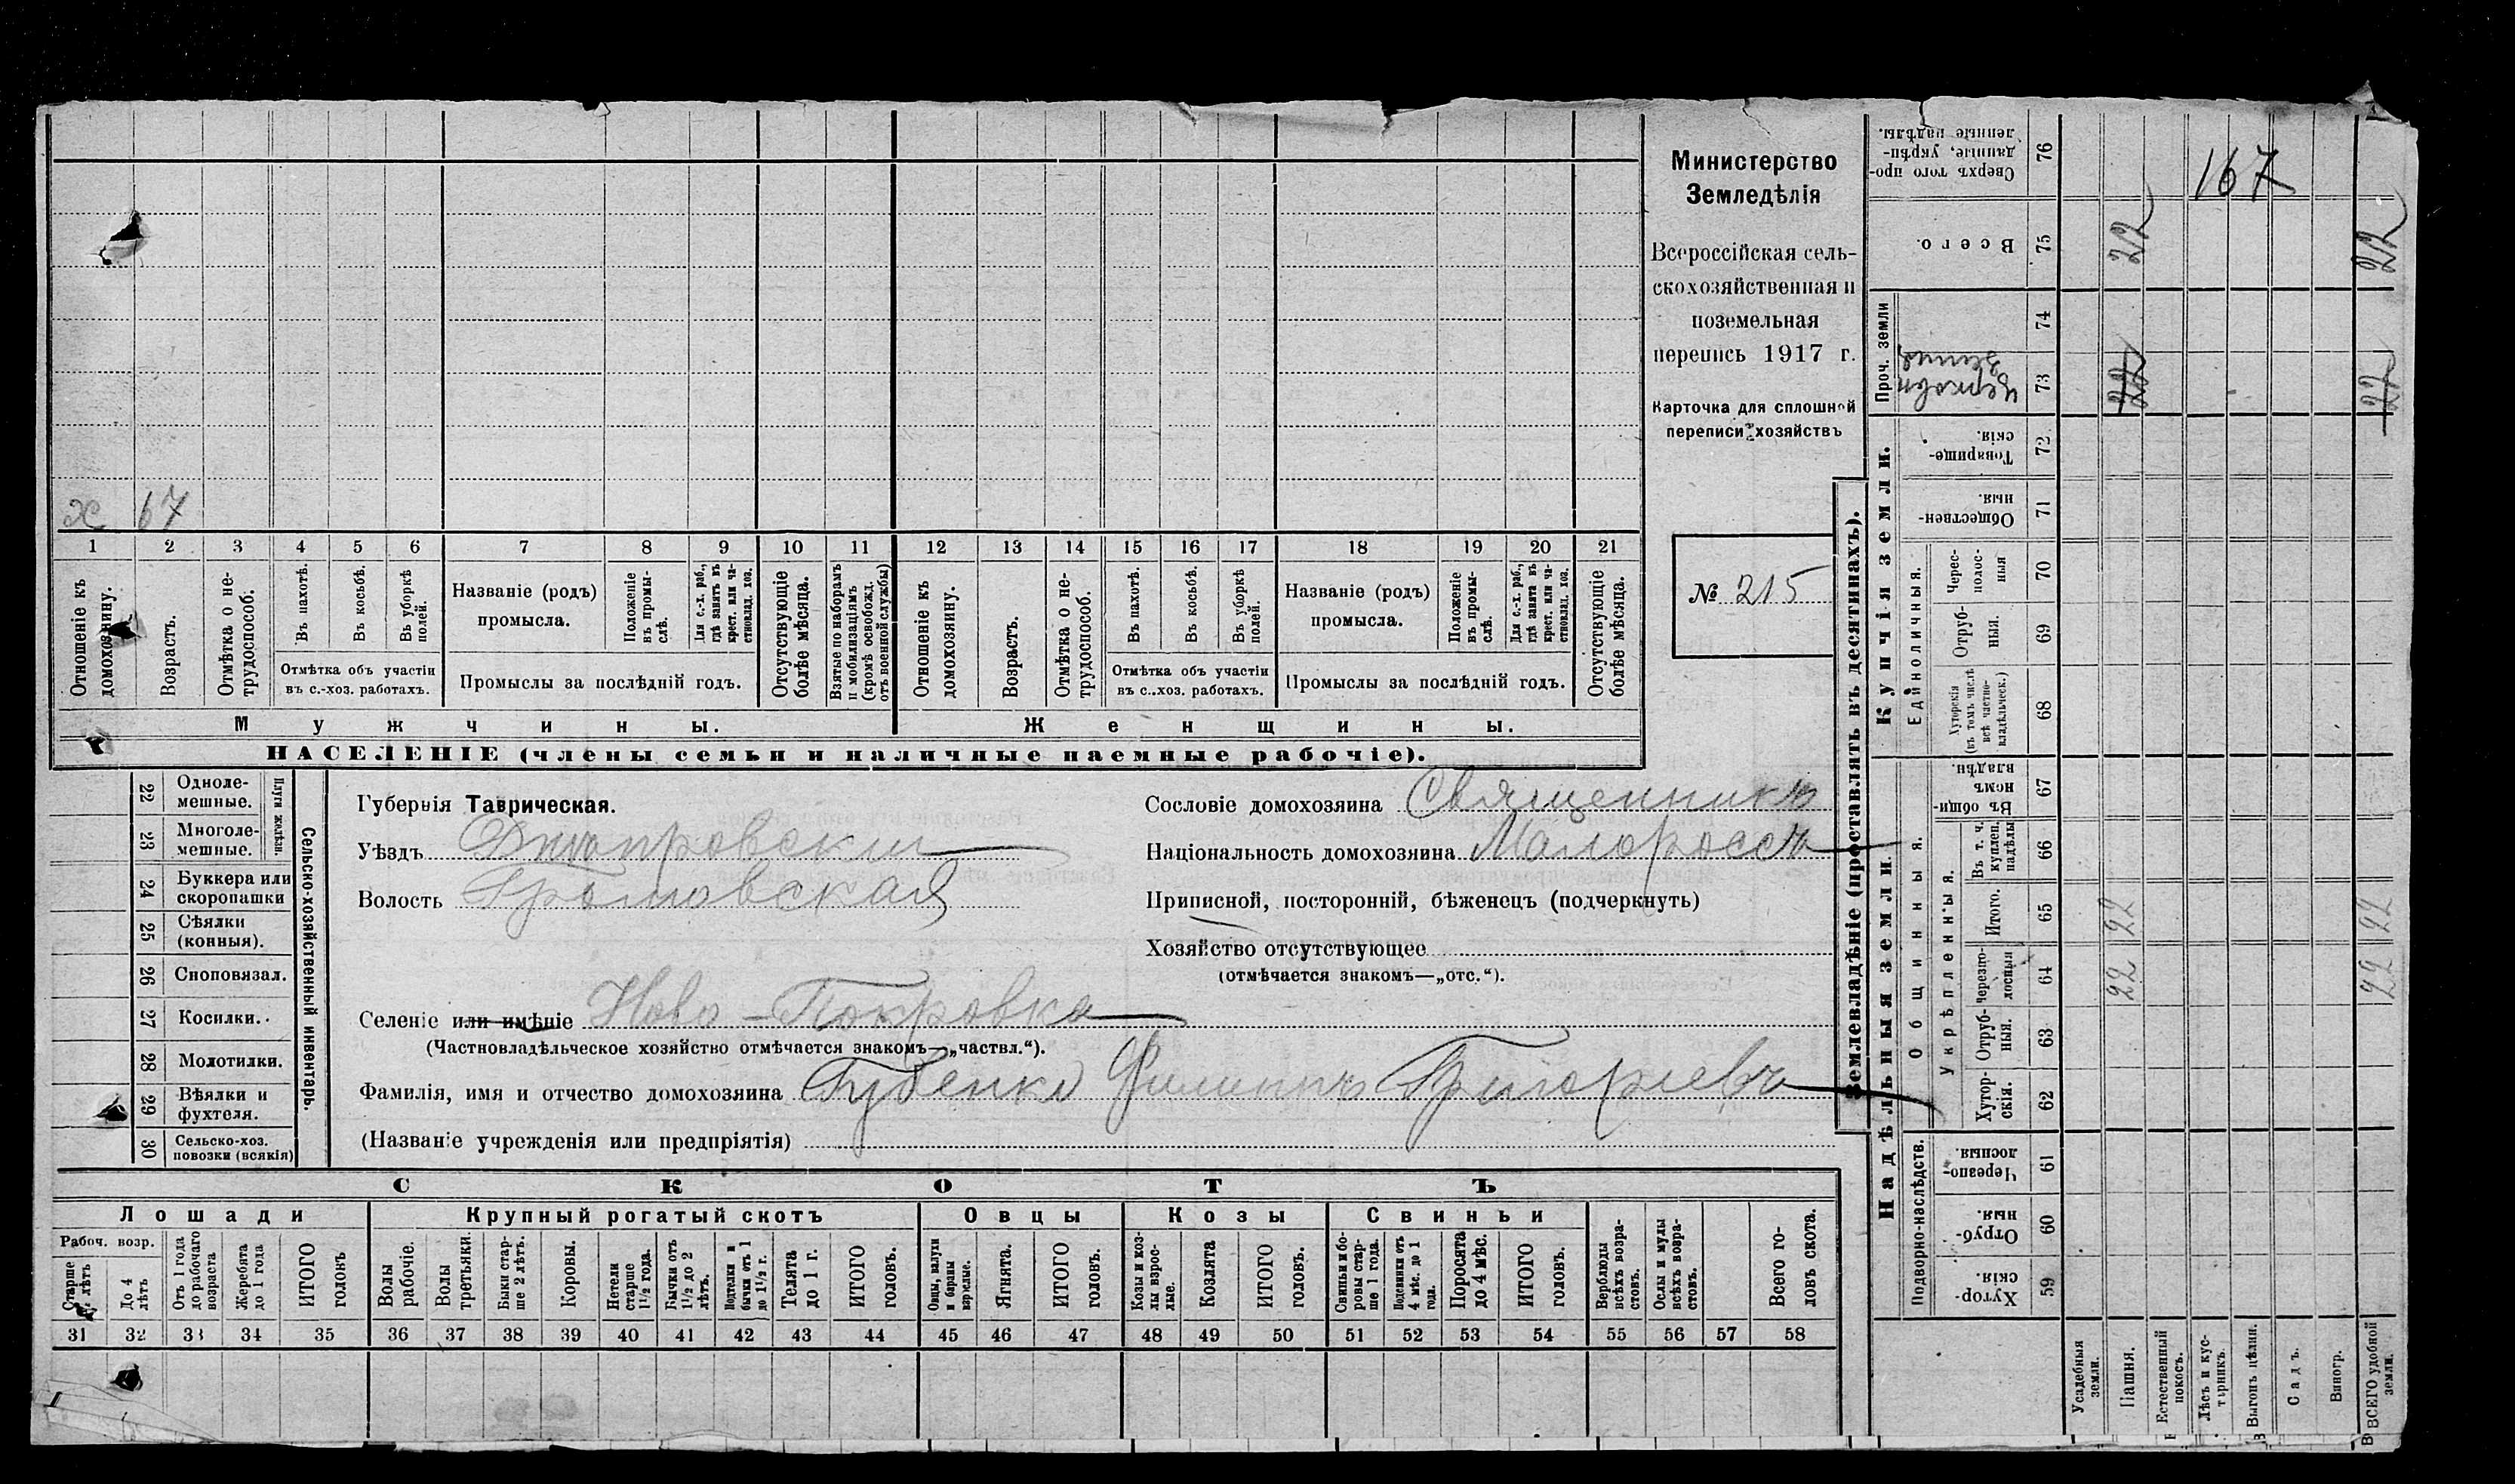 х 67
1 2 3 4 5 6 7 8 9 10 11 12 13 14 15 16 17 18 19 20 21
Отношеніе къ домохозяину.
Возрастъ.
Отмѣтка о не-
трудоспособ.
Въ пахотѣ.
Въ косьбѣ.
Въ уборкѣ полей.
Отмѣтка объ участіи
въ с.-хоз. работахъ.
Названіе (родъ)
промысла.
Положеніе
въ промы-
слѣ.
Для с.-х. раб.,
гдѣ занятъ въ
крест. или ча-
стновлад. хоз.
Промыслы за послѣдній годъ.
Отсутствующіе
болѣе мѣсяца.
Взятые по наборамъ
и мобилизаціямъ
(кромѣ освобожд.
отъ военной службы)
Отношеніе къ
домохозяину.
Возрастъ.
Отмѣтка о не-
трудоспособ.
Въ пахотѣ.
Въ косьбѣ.
Въ уборкѣ
полей.
Отмѣтка объ участіи
въ с..хоз. работахъ.
Названіе (родъ)
промысла.
Положеніе
въ промы-
слѣ.
Для с.-х. раб.,
гдѣ занята въ
крест. или ча-
стновлад. хоз.
Промыслы за послѣдній годъ.
Отсутствующіе
болѣе мѣсяца.
Мужчины.
Женщины.
НАСЕЛЕНІЕ (члены семьи и наличные наемные рабочіе).
Министерство
Земледѣлія
Всероссійская сель-
скохозяйственная и
поземельная
перепись 1917 г.
Карточка для сплошной
переписи хозяйствъ
№ 215
22 Одноле-
мешные.
23 Многоле-
мешные.
Плуги желѣзн.
24 Буккера или
скоропашки
25 Сѣялки
(конныя).
26 Сноповязал.
27 Косилки.
28 Молотилки.
29 Вѣялки и
фухтеля.
30 Сельско-хоз.
повозки (всякія)
Сельско-хозяйственный инвентарь.
Губернія Таврическая.
Уѣздъ Днѣпровскій
Волость Громовская
Селеніе или имѣніе Ново-Покровка
(Частновладѣльческое хозяйство отмѣчается знакомъ—„частвл.“).
Фамилія, имя и отчество домохозяина Губенко Филиппъ Григорьевъ
(Названіе учрежденія или предпріятія)
Сословіе домохозяина Священникъ
Національность домохозяина Малороссъ
Приписной, посторонній, бѣженецъ (подчеркнуть)
Хозяйство отсутствующее
(отмѣчается знакомъ—„отс.“).
СКОТЪ
Лошади
Рабоч. возр.
Старше 4 лѣтъ
До 4 лѣтъ
Отъ 1 года
до рабочаго
возраста
Жеребята
до 1 года
ИТОГО
головъ
Крупный рогатый скотъ
Волы
рабочіе.
Волы
третьяки.
Быки стар-
ше 2 лѣтъ.
Коровы.
Нетели
старше
1½ года.
Бычки отъ
1½ до 2
лѣтъ.
Подтелки и
бычки отъ 1
до 1½ г.
Телята
до 1 г.
ИТОГО
головъ.
Овцы
Овцы, валухи
и бараны
взрослые.
Ягнята.
ИТОГО
головъ.
Козы
Козы и коз-
лы взрос-
лые.
Козлята
ИТОГО
головъ.
Свиньи
Свиньи и бо-
ровы стар-
ше 1 года.
Подсвинки отъ
4 мѣс. до 1
года.
Поросята
до 4 мѣс.
ИТОГО
головъ.
Верблюды
всѣхъ возра-
стовъ.
Ослы и мулы
всѣхъ возра-
стовъ.
Всего го-
ловъ скота.
31 32 33 34 35 36 37 38 39 40 41 42 43 44 45 46 47 48 49 50 51 52 53 54 55 56 57 58
Землевладѣніе (проставлять въ десятинахъ).
Купчія земли.
Надѣльныя земли.
Сверхъ того про-
данные, укрѣп-
ленные надѣлы.
76
167
Всего.
75
22
22
Проч. земли
74
Церковн
земля
73
22
22
Товарище-
скія.
72
Обществен-
ныя.
71
Единоличныя.
Черес-
полос-
ныя
70
Отруб-
ныя.
69
Хуторскія
(въ томъ числѣ
всѣ частно-
владѣльческ.)
68
Общинныя.
Въ общин-
номъ
владѣн.
67
Укрѣпленныя.
Въ т. ч.
куплен.
надѣлы
66
Итого.
65
22
22
Черезпо-
лосныя
64
22
22
Отруб-
ныя.
63
Хутор-
скія.
62
Подворно-наслѣдств.
Черезпо-
лосныя.
61
Отруб-
ныя.
60
Хутор-
скія.
59
Усадебныя
земли.
Пашня.
Естественный
покосъ.
Лѣсъ и кус-
тарникъ.
Выгонъ цѣлин.
Садъ.
Виногр.
ВСЕГО удобной
земли.